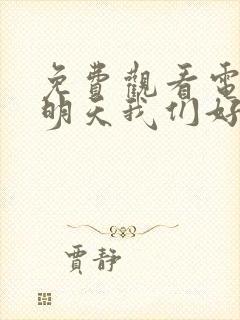 免費觀看電
明天我们好
賈靜